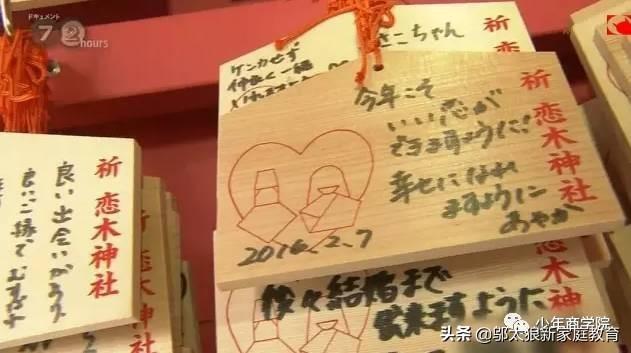 ドキュメント
72hours
さこちゃん
ケンカせず
仲良く一緒
祈 恋木神社
今年こそ
いい恋が
できますように!
幸せになれ
ますように
あやか
2016.2.7
祈 恋木神社
良い出会いがあり
良いご縁で
祈 恋木神社
後々結婚まで
出来ますように
少年商学院
头条 @邬太狼新家庭教育